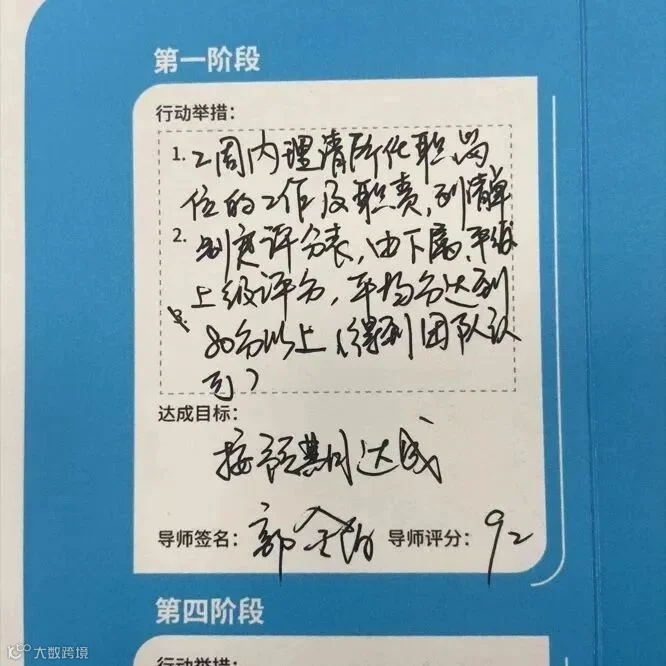 第一阶段
行动举措：
1. 2周内理清所任职岗
位的工作及职责，列清单
2. 制定评分表，由下属、平级
上级评分，平均分达到
80分以上（得到团队认
可）
达成目标：
按预期达成
导师签名：郭 导师评分：92
第四阶段
行动举措：
大数跨境